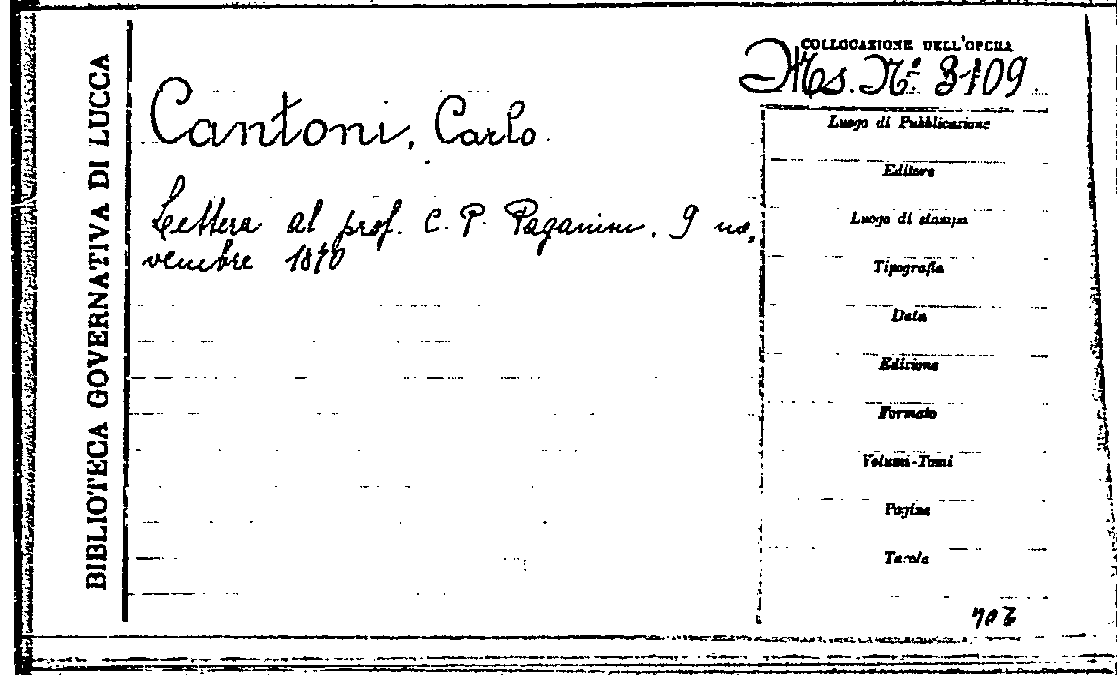 BIBLIOTECA GOVERNATIVA DI LUCCA
COLLOCAZIONE DELL'OPERA
Ms. Nº 3109
Cantoni, Carlo.
Lettera al prof. C. P. Paganini. 9 no,
vembre 1870
Luogo di Pubblicazione
Editore
Luogo di stampa
Tipografia
Data
Edizione
Formato
Volumi-Tomi
Pagine
Tavole